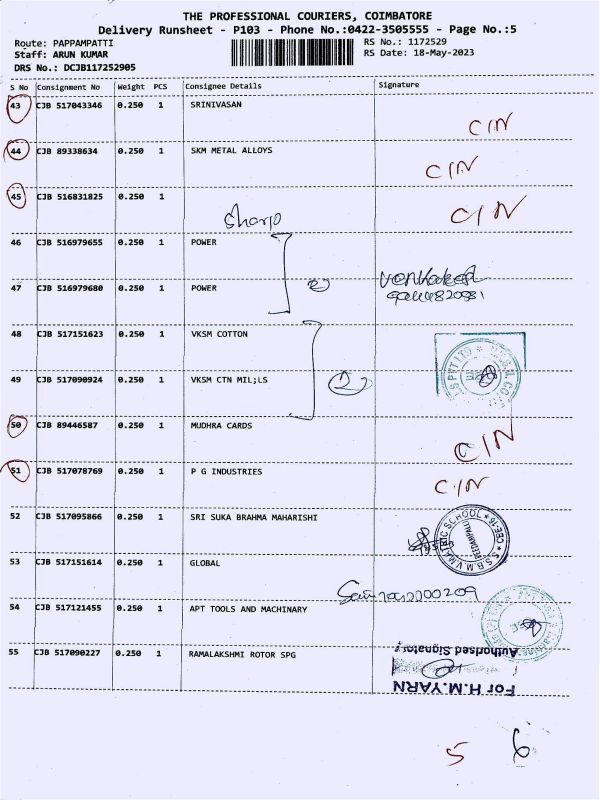 THE PROFESSIONAL COURIERS, COIMBATORE
Delivery Runsheet - P103 - Phone No.:0422-3505555 - Page No.:5
Route: PAPPAMPATTI RS No.: 1172529
Staff: ARUN KUMAR RS Date: 18-May-2023
DRS No.: DCJB117252905
S No Consignment No Weight PCS Consignee Details Signature
43 CJB 517043346 0.250 1 SRINIVASAN
CIN
44 CJB 89338634 0.250 1 SKM METAL ALLOYS
CIN
45 CJB 516831825 0.250 1
Sharp CIN
46 CJB 516979655 0.250 1 POWER
47 CJB 516979680 0.250 1 POWER
2
48 CJB 517151623 0.250 1 VKSM COTTON
49 CJB 517090924 0.250 1 VKSM CTN MIL;LS
2
50 CJB 89446587 0.250 1 MUDHRA CARDS
CIN
51 CJB 517078769 0.250 1 P G INDUSTRIES
CIN
52 CJB 517095866 0.250 1 SRI SUKA BRAHMA MAHARISHI
S.S.B.M.V MATRIC SCHOOL
53 CJB 517151614 0.250 1 GLOBAL
54 CJB 517121455 0.250 1 APT TOOLS AND MACHINARY
55 CJB 517090227 0.250 1 RAMALAKSHMI ROTOR SPG
Authorised Signatory
For H.M.YARN
5 6